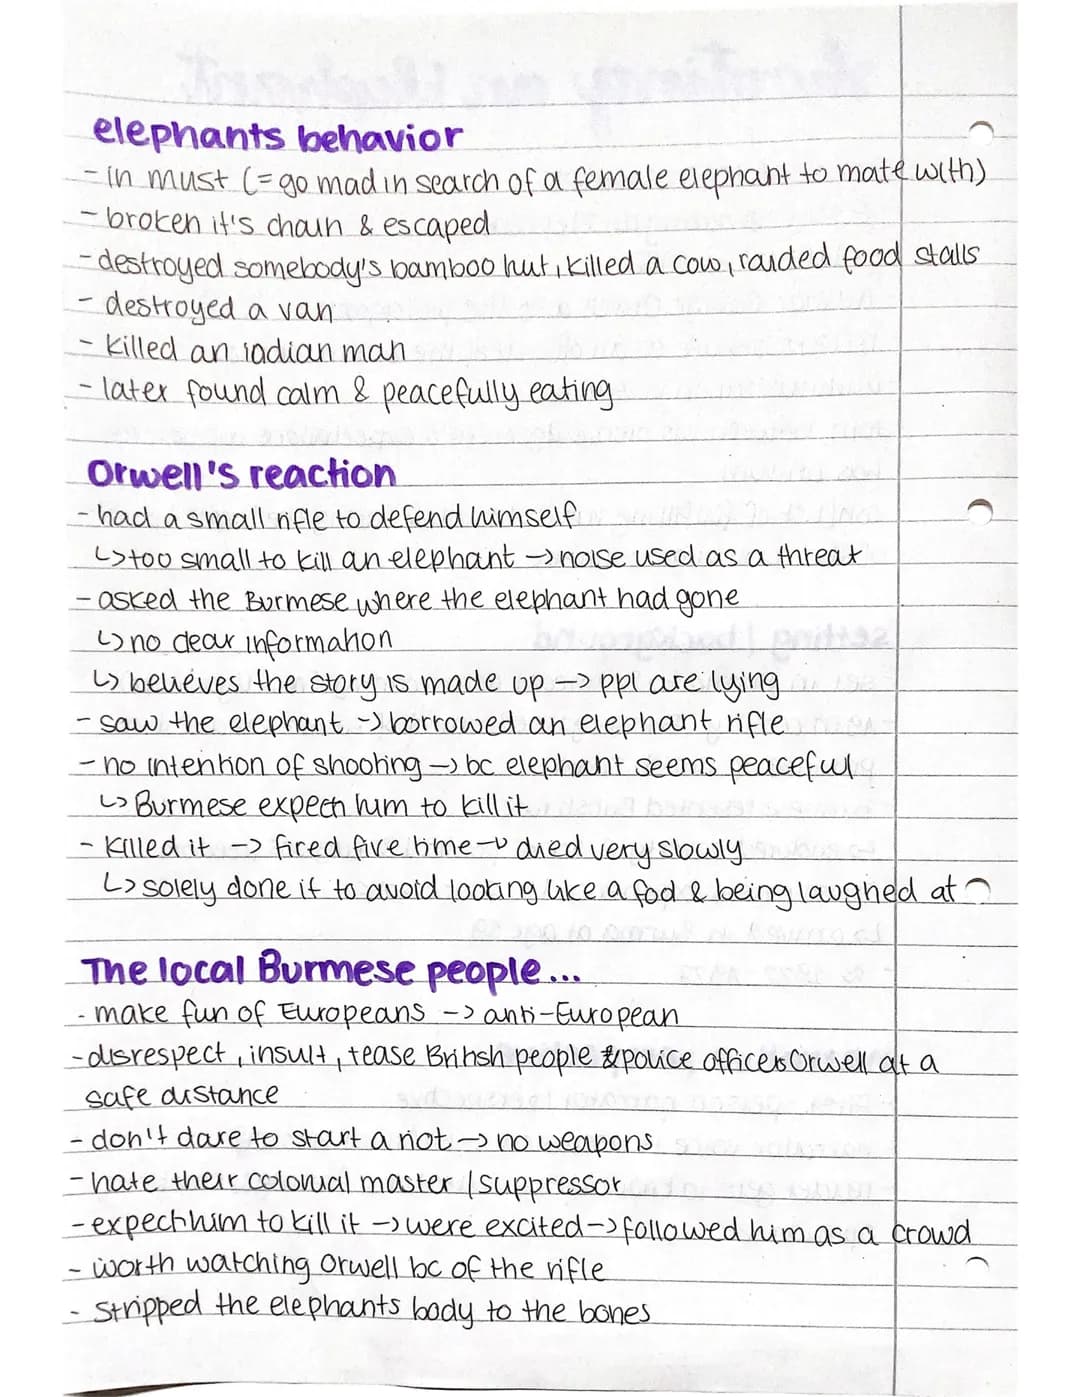 elephants behavior
- in must (= go mad in search of a female elephant to mate with)
- broken it's chain & escaped
- destroyed somebody's bamboo hut, killed a cow, raided food stalls
- destroyed a van
- killed an indian man
- later found calm & peacefully eating
Orwell's reaction
- had a small rifle to defend himself
↳ too small to kill an elephant → noise used as a threat
- asked the Burmese where the elephant had gone
↳ no clear information
↳ believes the story is made up → ppl are lying
- saw the elephant → borrowed an elephant rifle
- no intention of shooting → bc elephant seems peaceful
↳ Burmese expect him to kill it
- killed it → fired five time → died very slowly
↳ solely done it to avoid looking like a fool & being laughed at
The local Burmese people...
- make fun of Europeans → anti-European
- disrespect, insult, tease British people & police officer Orwell at a
safe distance
- don't dare to start a riot → no weapons
- hate their colonial master / suppressor
- expect him to kill it → were excited → followed him as a crowd
- worth watching Orwell bc of the rifle
- stripped the elephants body to the bones